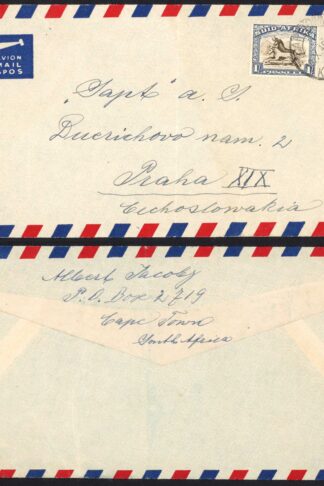 AVION
MAIL
POS
SUID-AFRIKA
1/-
„Sapt" a. S.
Ducrichovo nam. 2
Praha XIX
Cechoslowakia
Albert Jacoby
P.O. Box 2719
Cape Town
South Africa